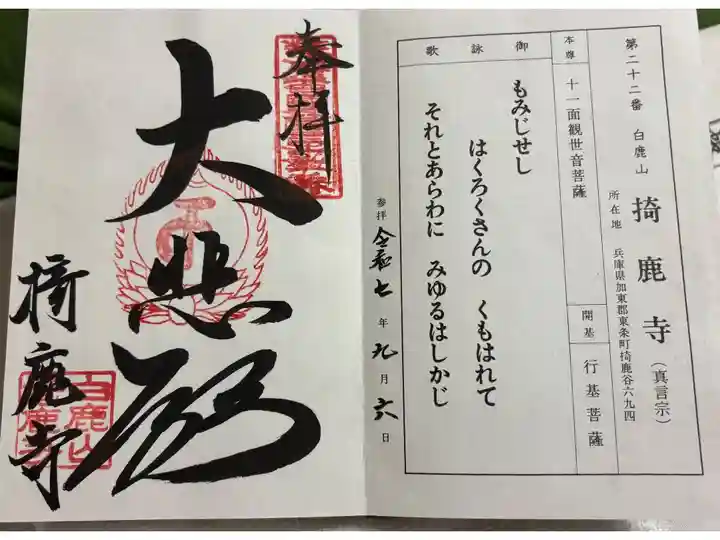 第二十二番 白鹿山 掎鹿寺(真言宗)
所在地 兵庫県加東郡東条町掎鹿谷六九四
本尊 十一面観世音菩薩
開基 行基菩薩
御詠歌
もみじせし
はくろくさんの くもはれて
それとあらわに みゆるはしかじ
参拝 令和七年九月六日
奉拝
大悲殿
掎鹿寺
白鹿山